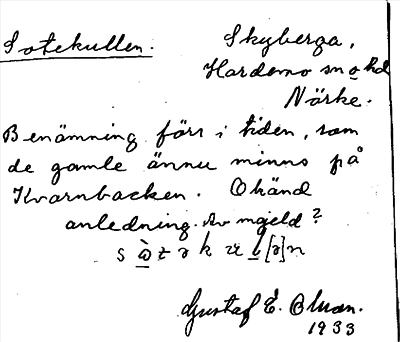 Sotekullen. Skyberga,
Hardemo sn o hd
Närke.
Benämning förr i tiden, som
de gamle ännu minns på
Kvarnbacken. Okänd
anledning. Av mjeld?
Gustaf E.
1933